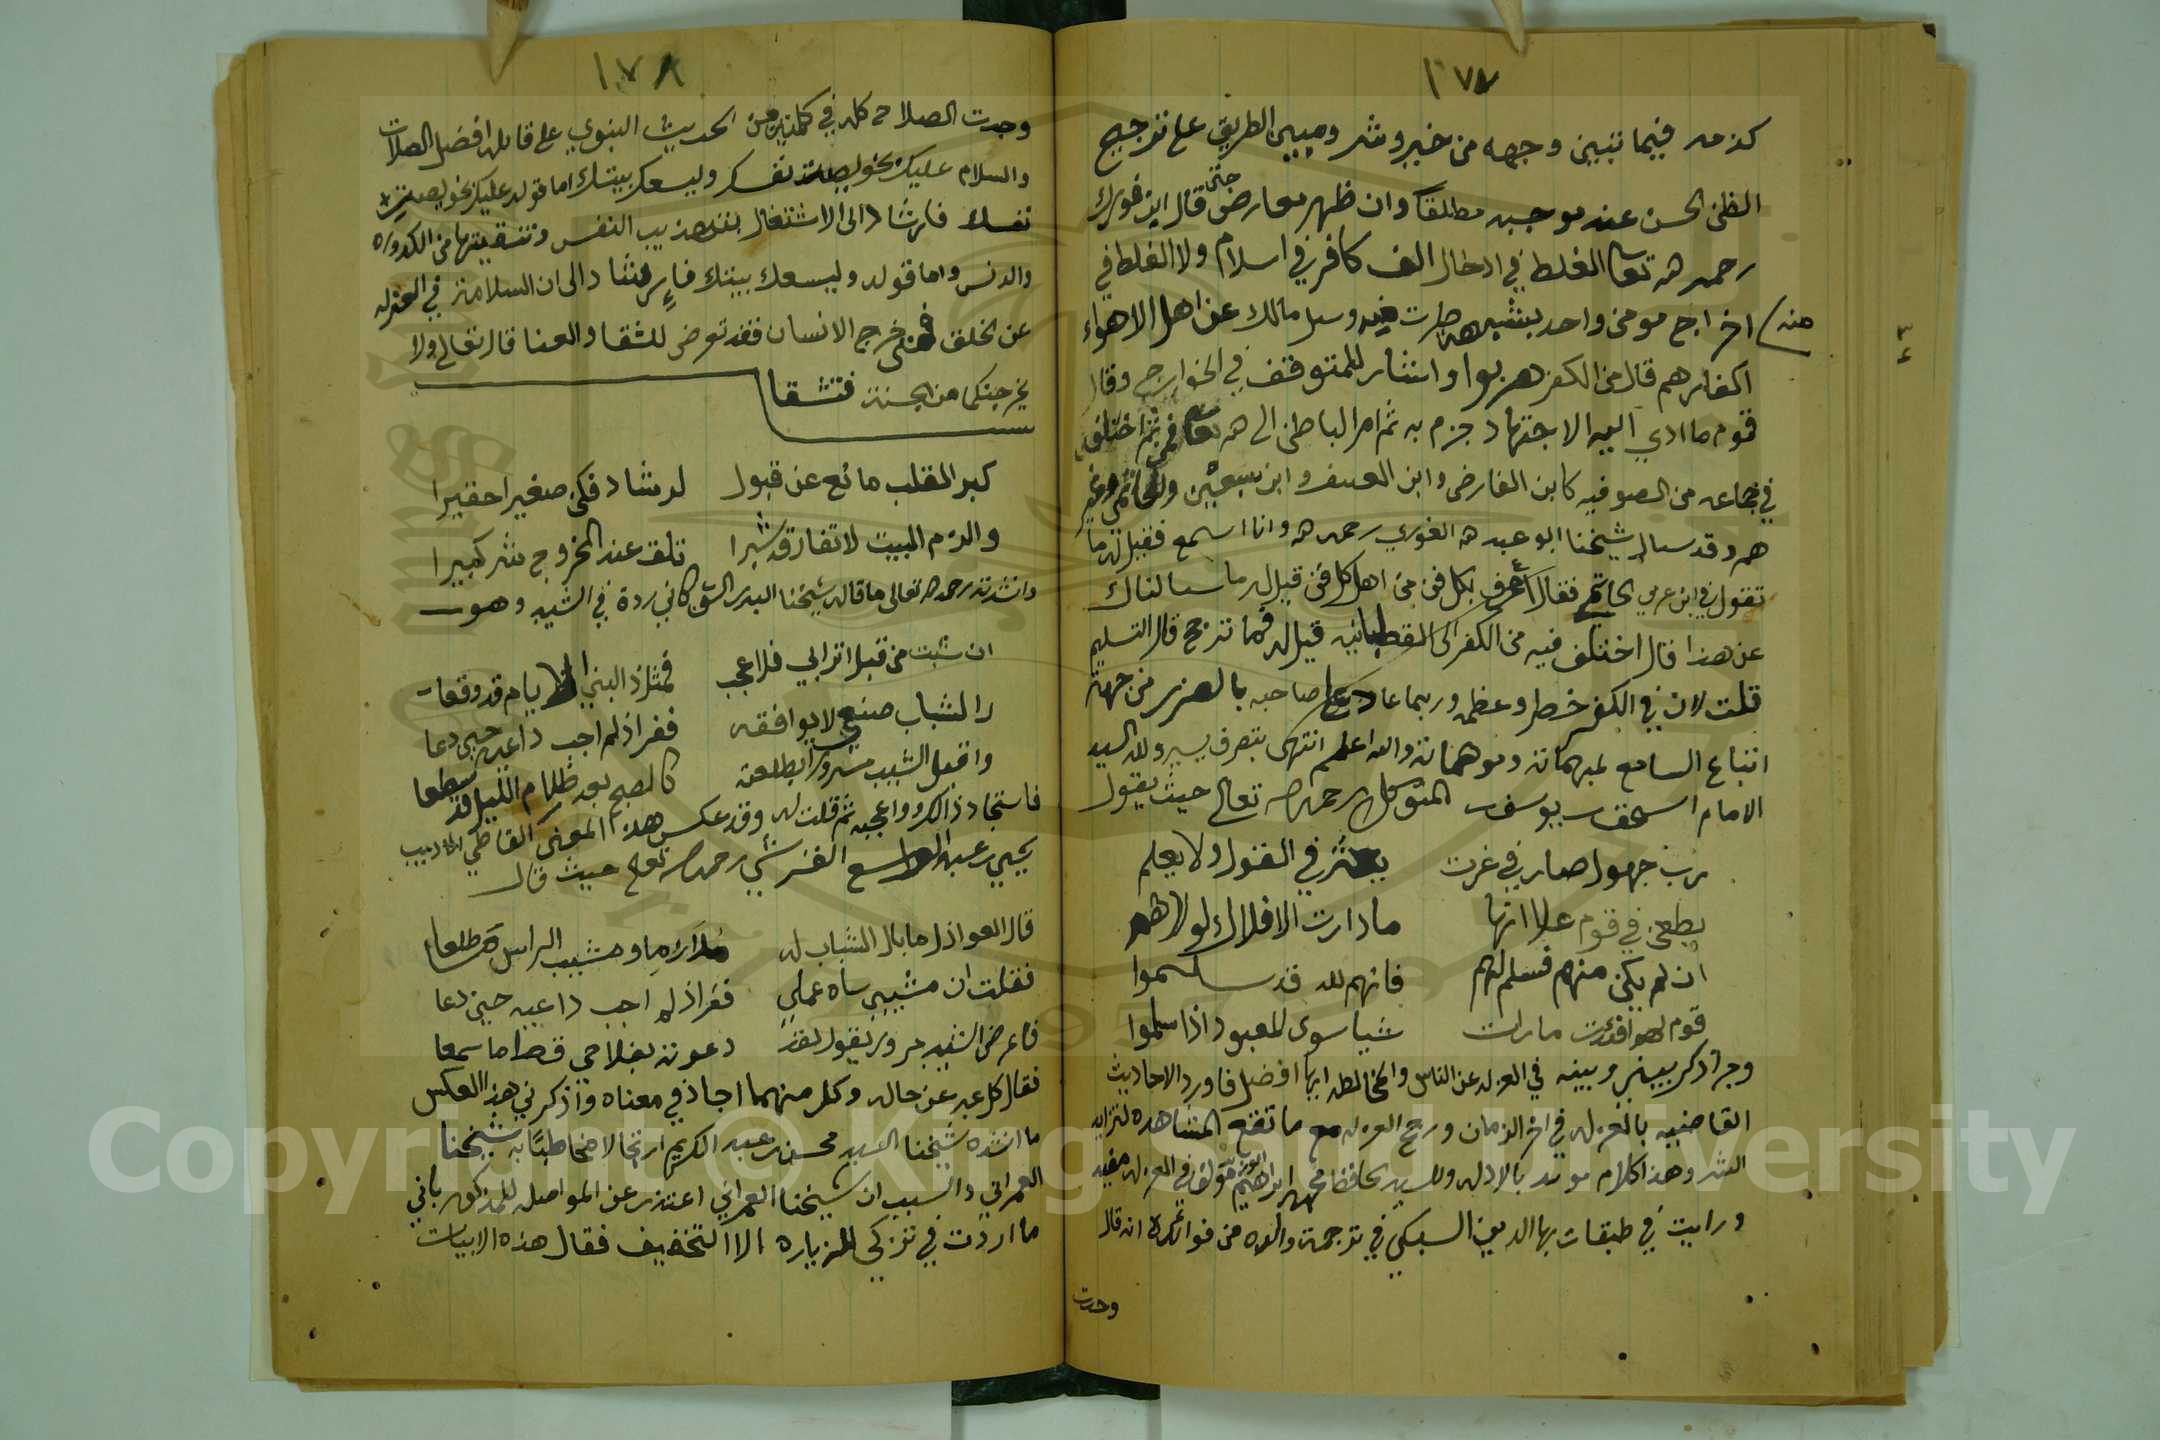 ١٧٧
كذمه فيما تبين وجهه من خير وشر ومبين الطريق على ترجيح
الظن الحسن عند موجبه مطلقا وان ظهر معارض حتى قال ابن فورك
رحمه الله تعالى الغلط في ادخال الف كافر في اسلام ولا الغلط في
اخراج مومن واحد بشبهة ظهرت منه وسل مالك عن اهل الاهواء
اكفارهم قال من الكفر هربوا واشار للمتوقف في الخوارج وقال
قوم ما ادي اليه الاجتهاد جزم به ثم امر الباطن الى الله تعالى فمن ثم اختلف
في جماعه من الصوفيه كابن الفارض وابن العفيف وابن سبعين والحاتمي وغير
هم وقد سال شيخنا ابو عبد الله الغوري رحمه الله وانا اسمع فقيل له ما
تقول في ابن عربي الحاتمي فقال أعرف بكل فن من اهل كل فن قيل له ما سالناك
عن هذا قال اختلف فيه من الكفر الى القطبانيه قيل له فما ترجح قال التسليم
قلت لان في الكفر خطر وعظمه وربما عاد على صاحبه بالضرر من جهة
اتباع السامع لمبهماته وموهماته والله اعلم انتهى بتصرف يسير ولله السيد
الامام اسحق بن يوسف المتوكل رحمه الله تعالى حيث يقول
رب جهول صار في غرت يعثر في القول ولا يعلم
يطعن في قوم علا انها ما دارت الافلاك لولاهم
ان لم يكن منهم فسلم لهم فانهم لله قد سلموا
قوم لهم افئدت مارات شيا سوى المعبود اذا سلموا
وجرا ذكر بيني وبينه في العزله عن الناس والمخالطه ايها افضل فاورد الاحاديث
القاضيه بالعزله في اخر الزمان ورجح العزله مع ما تقع المشاهده لتزايد
الشر وهذا كلام مويد بالادله وللسيد الحافظ محمد بن ابراهيم الوزير مولف في العزله مفيد
ورايت في طبقات بها الدين السبكي في ترجمة والده من فوائده انه قال
وجدت
١٧٨
وجدت الصلاح كله في كلمتين من الحديث النبوي على قايله افضل الصلات
والسلام عليك بخويصت نفسك وليسعك بيتك اما قوله عليك بخويصت
نفسك فارشاد الى الاشتغال بتهذيب النفس وتنقيتها من الكدوره
والدنس واما قوله وليسعك بيتك فإرشاد الى ان السلامة في العزله
عن الخلق فمتى خرج الانسان فقد تعرض للشقا والعنا قال تعالى ولا
يخرجنكما من الجنة فتشقا
كبر القلب مانع عن قبول لرشاد فكن صغيرا حقيرا
والزم البيت لا تفارقه شبرا تلق عند الخروج شر كبيرا
وانشدته رحمه الله تعالى ما قاله شيخنا البدر الشوكاني ردة في الشيب وهو
ان شبت من قبل اترابي فلا عجب فمثل ذا البني الايام قد وقعا
را الشباب صنيعي لا يوافقه ففر اذ لم اجب داعيه حين دعا
واقبل الشيب مسرورا بطلعته كالصبح بعد ظلام الليل قد سطعا
فاستجاد ذالك واعجبه ثم قلت له وقد عكس هذا المعنى القاضي الاديب
يحيى بن عبد الواسع القرشي رحمه الله تعالى حيث قال
قال العواذل ما بال الشباب له ومشيب الراس قد طلعا
فقلت ان مشيبي ساه عملي ففر اذ لم اجب داعيه حين دعا
فاعرض الشيب مزور يقول لقد دعوته بفلاحي قط ما سمعا
فقال كل عبر عن حاله وكل منهما اجاد في معناه واذكرني هذا العكس
ما انشده شيخنا السيد محسن بن عبد الكريم ارتجالا مخاطبًا به شيخنا
العمراني والسبب ان شيخنا العمراني اعتذر عن المواصله للمذكور باني
ما اردت في تركي للزياره الا التخفيف فقال هذه الابيات